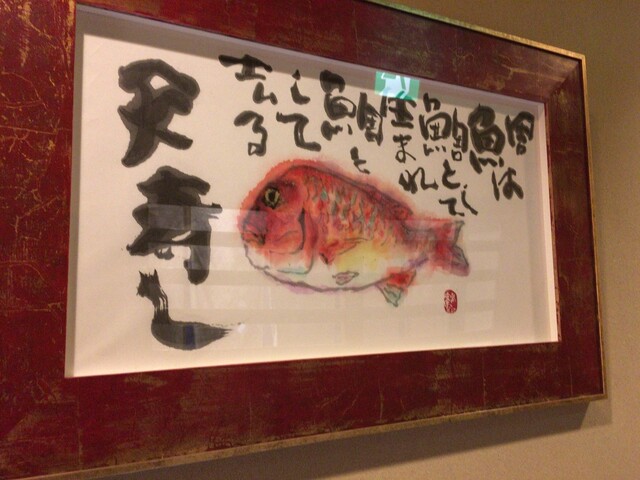 鯛は
鯛として
生まれ
鯛と
して
去る
炙寿し